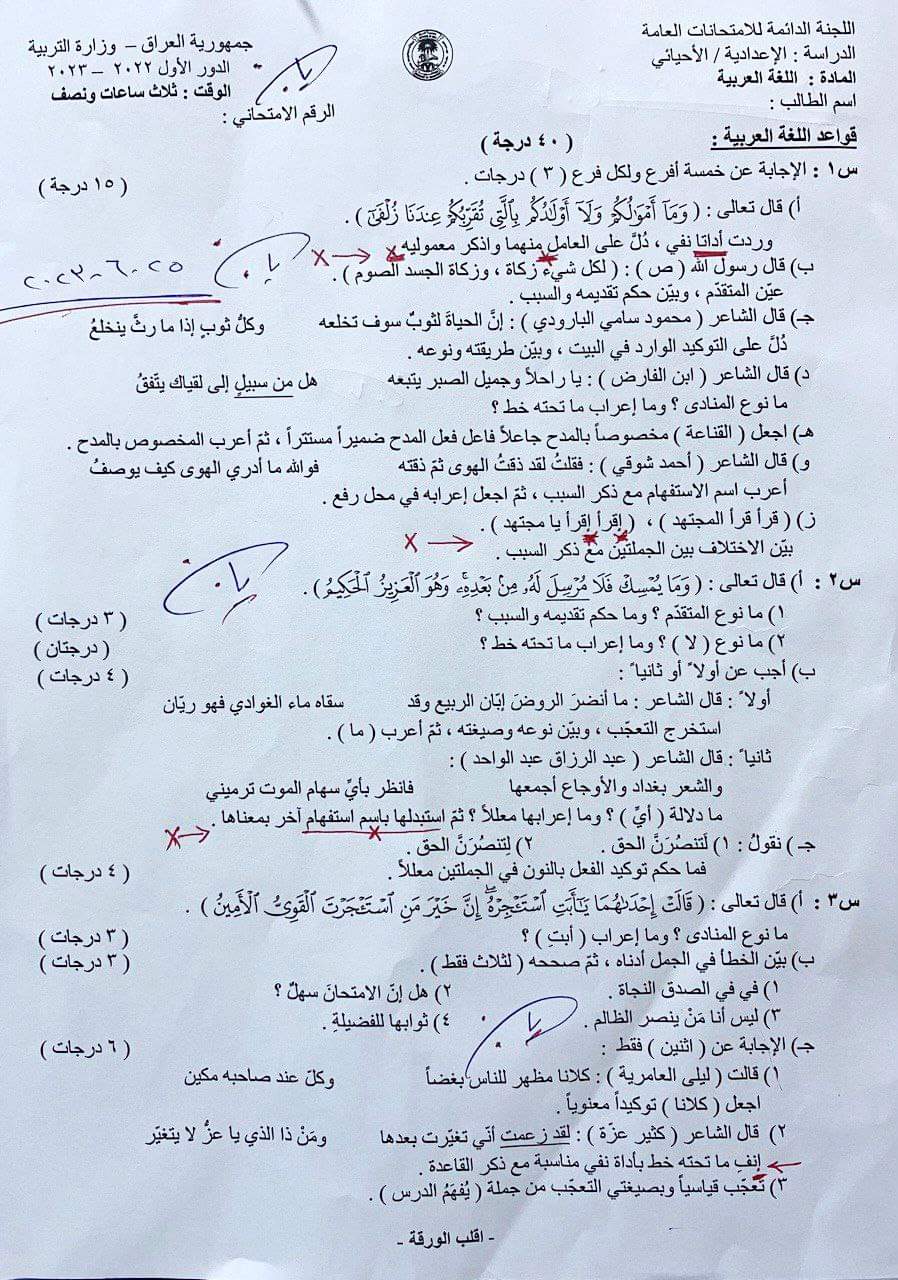 اللجنة الدائمة للامتحانات العامة
الدراسة : الإعدادية / الأحيائي
المادة : اللغة العربية
اسم الطالب :
جمهورية العراق – وزارة التربية
الدور الأول ٢٠٢٢ – ٢٠٢٣
الوقت : ثلاث ساعات ونصف
الرقم الامتحاني :
قواعد اللغة العربية : ( ٤٠ درجة )
س١ : الإجابة عن خمسة أفرع ولكل فرع ( ٣ ) درجات . ( ١٥ درجة )
أ) قال تعالى : ( وَمَآ أَمْوَٰلُكُمْ وَلَآ أَوْلَٰدُكُم بِٱلَّتِى تُقَرِّبُكُمْ عِندَنَا زُلْفَىٰٓ ) .
وردت أداتا نفي ، دُلَّ على العامل منهما واذكر معموليه
ب) قال رسول الله ( ص ) : ( لكل شيء زكاة ، وزكاة الجسد الصوم ) .
٢٠٢٣-٦-٢٥
عيّن المتقدّم ، وبيّن حكم تقديمه والسبب .
جـ) قال الشاعر ( محمود سامي البارودي ) : إنَّ الحياةَ لثوبٌ سوف تخلعه وكلُّ ثوبٍ إذا ما رثَّ ينخلعُ
دُلَّ على التوكيد الوارد في البيت ، وبيّن طريقته ونوعه .
د) قال الشاعر ( ابن الفارض ) : يا راحلاً وجميل الصبر يتبعه هل من سبيلٍ إلى لقياك يتّفقُ
ما نوع المنادى ؟ وما إعراب ما تحته خط ؟
هـ) اجعل ( القناعة ) مخصوصاً بالمدح جاعلاً فاعل فعل المدح ضميراً مستتراً ، ثمّ أعرب المخصوص بالمدح .
و) قال الشاعر ( أحمد شوقي ) : فقلتُ لقد ذقتُ الهوى ثمّ ذقته فوالله ما أدري الهوى كيف يوصفُ
أعرب اسم الاستفهام مع ذكر السبب ، ثمّ اجعل إعرابه في محل رفع .
ز) ( قرأ قرأ المجتهد ) ، ( إقرأ إقرأ يا مجتهد ) .
بيّن الاختلاف بين الجملتين مع ذكر السبب .
س٢ : أ) قال تعالى : ( وَمَا يُمْسِكْ فَلَا مُرْسِلَ لَهُۥ مِنۢ بَعْدِهِۦ ۚ وَهُوَ ٱلْعَزِيزُ ٱلْحَكِيمُ ) .
١) ما نوع المتقدّم ؟ وما حكم تقديمه والسبب ؟ ( ٣ درجات )
٢) ما نوع ( لا ) ؟ وما إعراب ما تحته خط ؟ ( درجتان )
ب) أجب عن أولاً أو ثانياً : ( ٤ درجات )
أولاً : قال الشاعر : ما أنضرَ الروضَ إبّان الربيع وقد سقاه ماء الغوادي فهو ريّان
استخرج التعجّب ، وبيّن نوعه وصيغته ، ثمّ أعرب ( ما ) .
ثانياً : قال الشاعر ( عبد الرزاق عبد الواحد ) :
والشعر بغداد والأوجاع أجمعها فانظر بأيِّ سهام الموت ترميني
ما دلالة ( أيِّ ) ؟ وما إعرابها معللاً ؟ ثمّ استبدلها باسم استفهام آخر بمعناها .
جـ ) نقولُ : ١) لَتنصُرَنَّ الحق . ٢) لِتنصُرَنَّ الحق .
فما حكم توكيد الفعل بالنون في الجملتين معللاً . ( ٤ درجات )
س٣ : أ) قال تعالى : ( قَالَتْ إِحْدَىٰهُمَا يَٰٓأَبَتِ ٱسْتَـْٔجِرْهُ ۖ إِنَّ خَيْرَ مَنِ ٱسْتَـْٔجَرْتَ ٱلْقَوِىُّ ٱلْأَمِينُ ) .
ما نوع المنادى ؟ وما إعراب ( أبتِ ) ؟ ( ٣ درجات )
ب) بيّن الخطأ في الجمل أدناه ، ثمّ صححه ( لثلاث فقط ) . ( ٣ درجات )
١) في في الصدق النجاة . ٢) هل إنّ الامتحانَ سهلٌ ؟
٣) ليس أنا مَنْ ينصر الظالم . ٤) ثوابها للفضيلةِ .
جـ) الإجابة عن ( اثنين ) فقط : ( ٦ درجات )
١) قالت ( ليلى العامرية ) : كلانا مظهر للناس بغضاً وكلّ عند صاحبه مكين
اجعل ( كلانا ) توكيداً معنوياً .
٢) قال الشاعر ( كثير عزّة ) : لقد زعمت أنّي تغيّرت بعدها ومَنْ ذا الذي يا عزُّ لا يتغيّر
إنفِ ما تحته خط بأداة نفي مناسبة مع ذكر القاعدة .
٣) تعجّب قياسياً وبصيغتي التعجّب من جملة ( يُفهَمُ الدرس ) .
- اقلب الورقة -